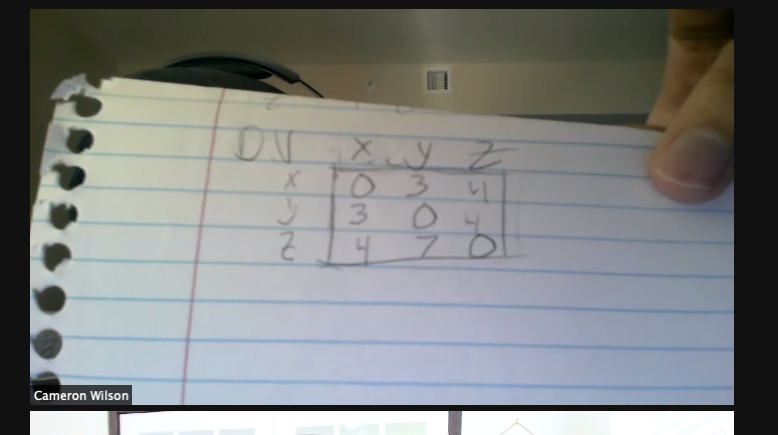 DV x y z
x 0 3 4
y 3 0 4
z 4 7 0
Cameron Wilson